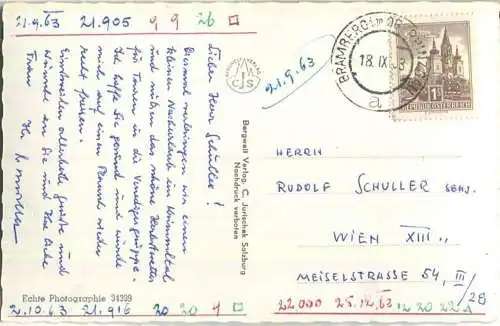 21.9.63 21.905 9 9 26
Lieber Herr Schuller!
Diesmal verbringen wir einen
kleinen Nachurlaub im Krimmltal
und nützen das schöne Herbstwetter
für Touren in die Venedigergruppe.
Ich hoffe Sie gesund und würde
mich auf einen Besuch wieder
recht freuen.
Einstweilen allerbeste Grüße und
Wünsche an Sie und Ihre liebe
Frau Ihr
Echte Photographie 34399
2.10.63 21.916 20 20 9
Bergwelt Verlag, C. Jurischek Salzburg
Nachdruck verboten
CJS
21.9.63
BRAMBERG IM OBERPINZGAU
18.IX.63
a
1S
REPUBLIK ÖSTERREICH
HERRN
RUDOLF SCHULLER SENJ.
WIEN XIII.,
MEISELSTRASSE 54, III/28
22000 25.12.63 12 20 22